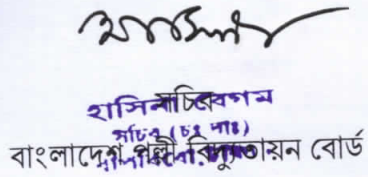 সচিব
হাসিনা বেগম
সচিব (চঃ দাঃ)
বাংলাদেশ পল্লী বিদ্যুতায়ন বোর্ড